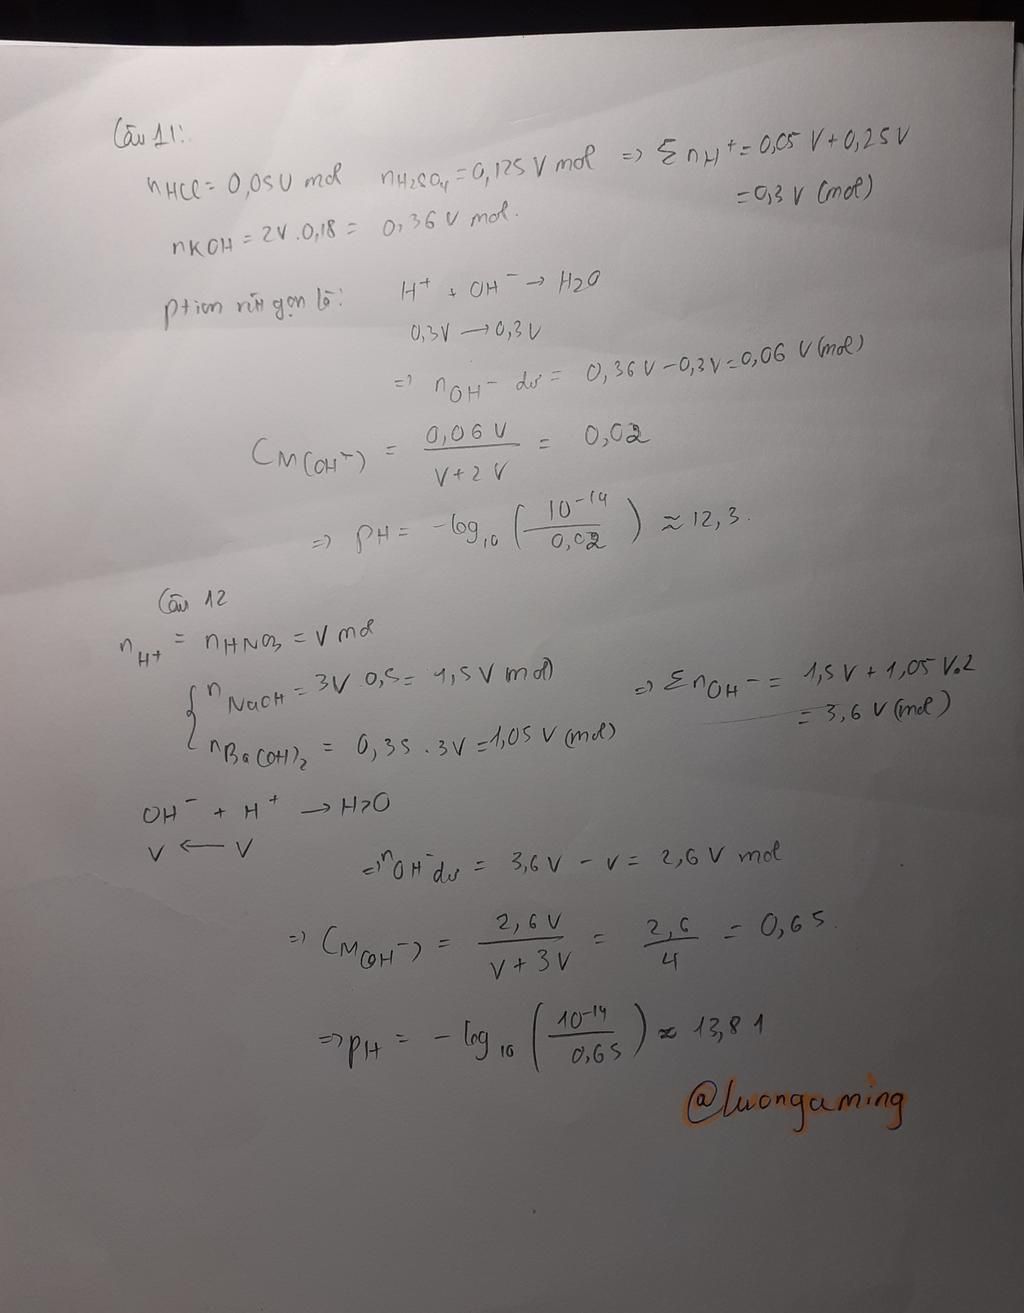 Câu 11:
nHCl = 0,05V mol nH2SO4 = 0,125 V mol => Σ nH+ = 0,05 V + 0,25 V
= 0,3 V (mol)
nKOH = 2V . 0,18 = 0,36 V mol.
ption rút gọn là: H+ + OH- → H2O
0,3V → 0,3V
=> nOH- dư = 0,36 V - 0,3 V = 0,06 V (mol)
CM(OH-) = 0,06 V / V + 2 V = 0,02
=> pH = -log10 (10-14 / 0,02) ≈ 12,3.
Câu 12
nH+ = nHNO3 = V mol
{ nNaOH = 3V 0,5 = 1,5 V mol => Σ nOH- = 1,5 V + 1,05 V.2
= 3,6 V (mol)
nBa(OH)2 = 0,35 . 3V = 1,05 V (mol)
OH- + H+ → H2O
V ← V
=> nOH- dư = 3,6 V - V = 2,6 V mol
=> CM(OH-) = 2,6 V / V + 3 V = 2,6 / 4 = 0,65
=> pH = -log10 (10-14 / 0,65) ≈ 13,81
@luongaming